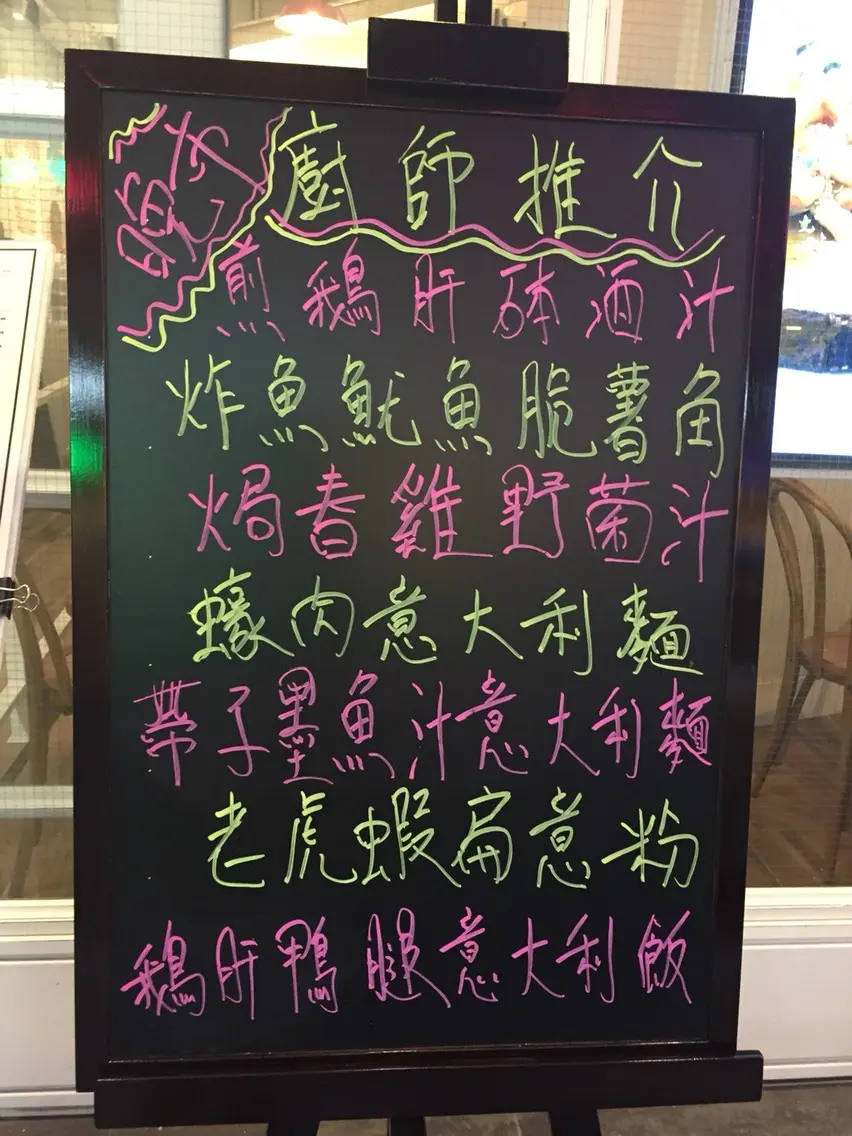 廚師推介
煎鵝肝砵酒汁
炸魚魷魚脆薯角
焗春雞野菌汁
蠔肉意大利麵
帶子墨魚汁意大利麵
老虎蝦扁意粉
鵝肝鴨腿意大利飯